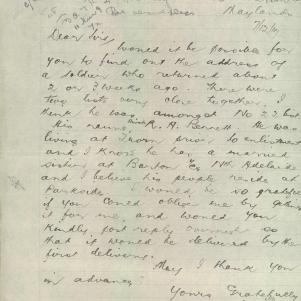 Maylands
7/12/17
Dear Sir,
would it be possible for
you to find out the address of
a soldier who returned about
2 or 3 weeks ago. There were
two lots very close together. I
think he was amongst No 22 lot
His name R. A. Bennett. He was
living at prior to enlistment
and I know he has a married
sister at Barton Nth. Adelaide
and I believe his people reside at
Parkside. I would be so grateful
if you could oblige me by getting
it for me, and would you
kindly post reply so
that it would be delivered by the
first delivery.
May I thank you
in advance
Yours Gratefully